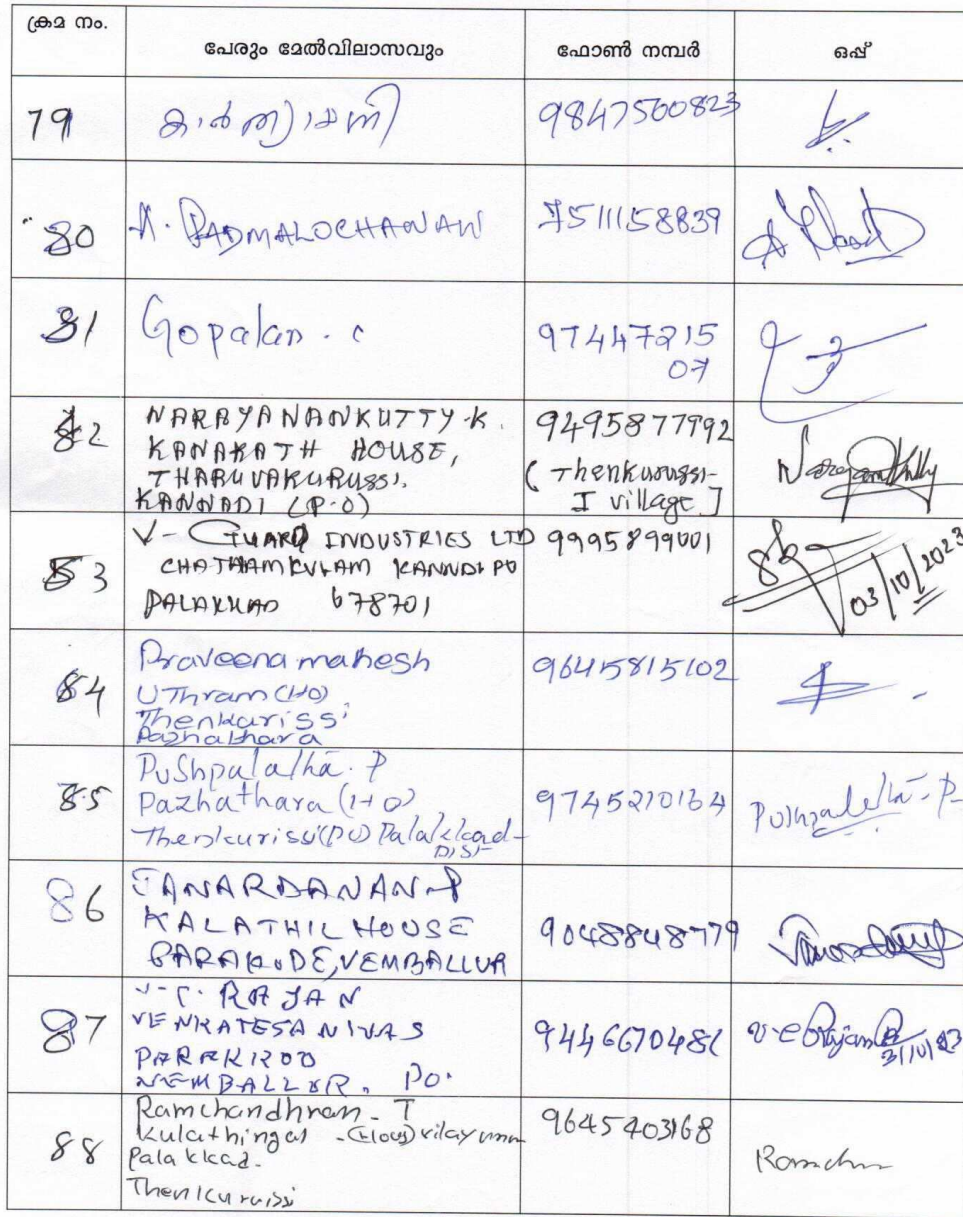 ക്രമ നം.
പേരും മേൽവിലാസവും
ഫോൺ നമ്പർ
ഒപ്പ്
79
കാർത്ത്യായനി
9847500823
80
A. PADMALOCHANAN
7511158839
81
Gopalan . c
97447215
07
82
NARAYANANKUTTY.K.
KANAKATH HOUSE,
THARUVAKURUSSI.
KANNADI (P.O)
9495877992
(Thenkurussi-
I village]
83
V-GUARD INDUSTRIES LTD
CHATHAMKULAM KANNDI PO
PALAKKAD 678701
9995899001
03/10/2023
84
Praveena mahesh
UThram (HO)
Thenkurissi
Pazhathara
9645815102
85
Pushpalatha. P
Pazhathara (HO)
Thenkurissi(PO) Palakkad
DIST
9745210164
Pushpalatha - P
86
JANARDANAN P
KALATHIL HOUSE
PARAKODE, VEMBALLUR
9048848779
87
V-C. RAJAN
VENKATESA NIVAS
PARAKKODE
VEMBALLUR. PO.
944667048
88
Ramchandhran - T
Kulathingal - (House)
Palakkad.
Thenkurussi
9645403168